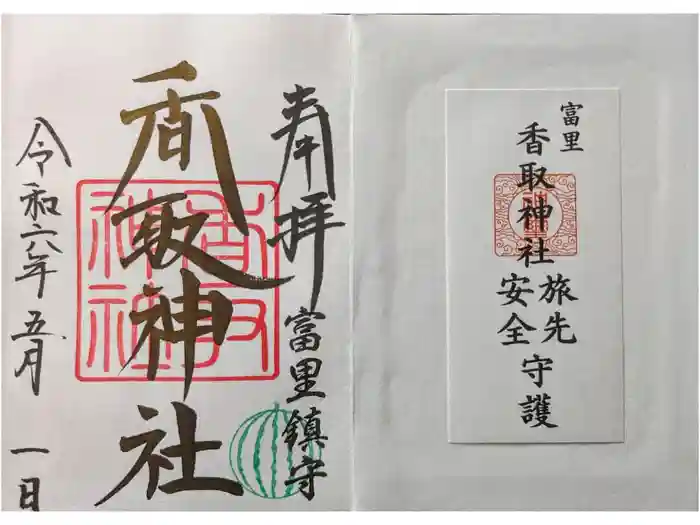 奉拝
富里鎮守
香取神社
香取
神社
令和六年五月一日
富里
香取神社
旅先
安全
守護